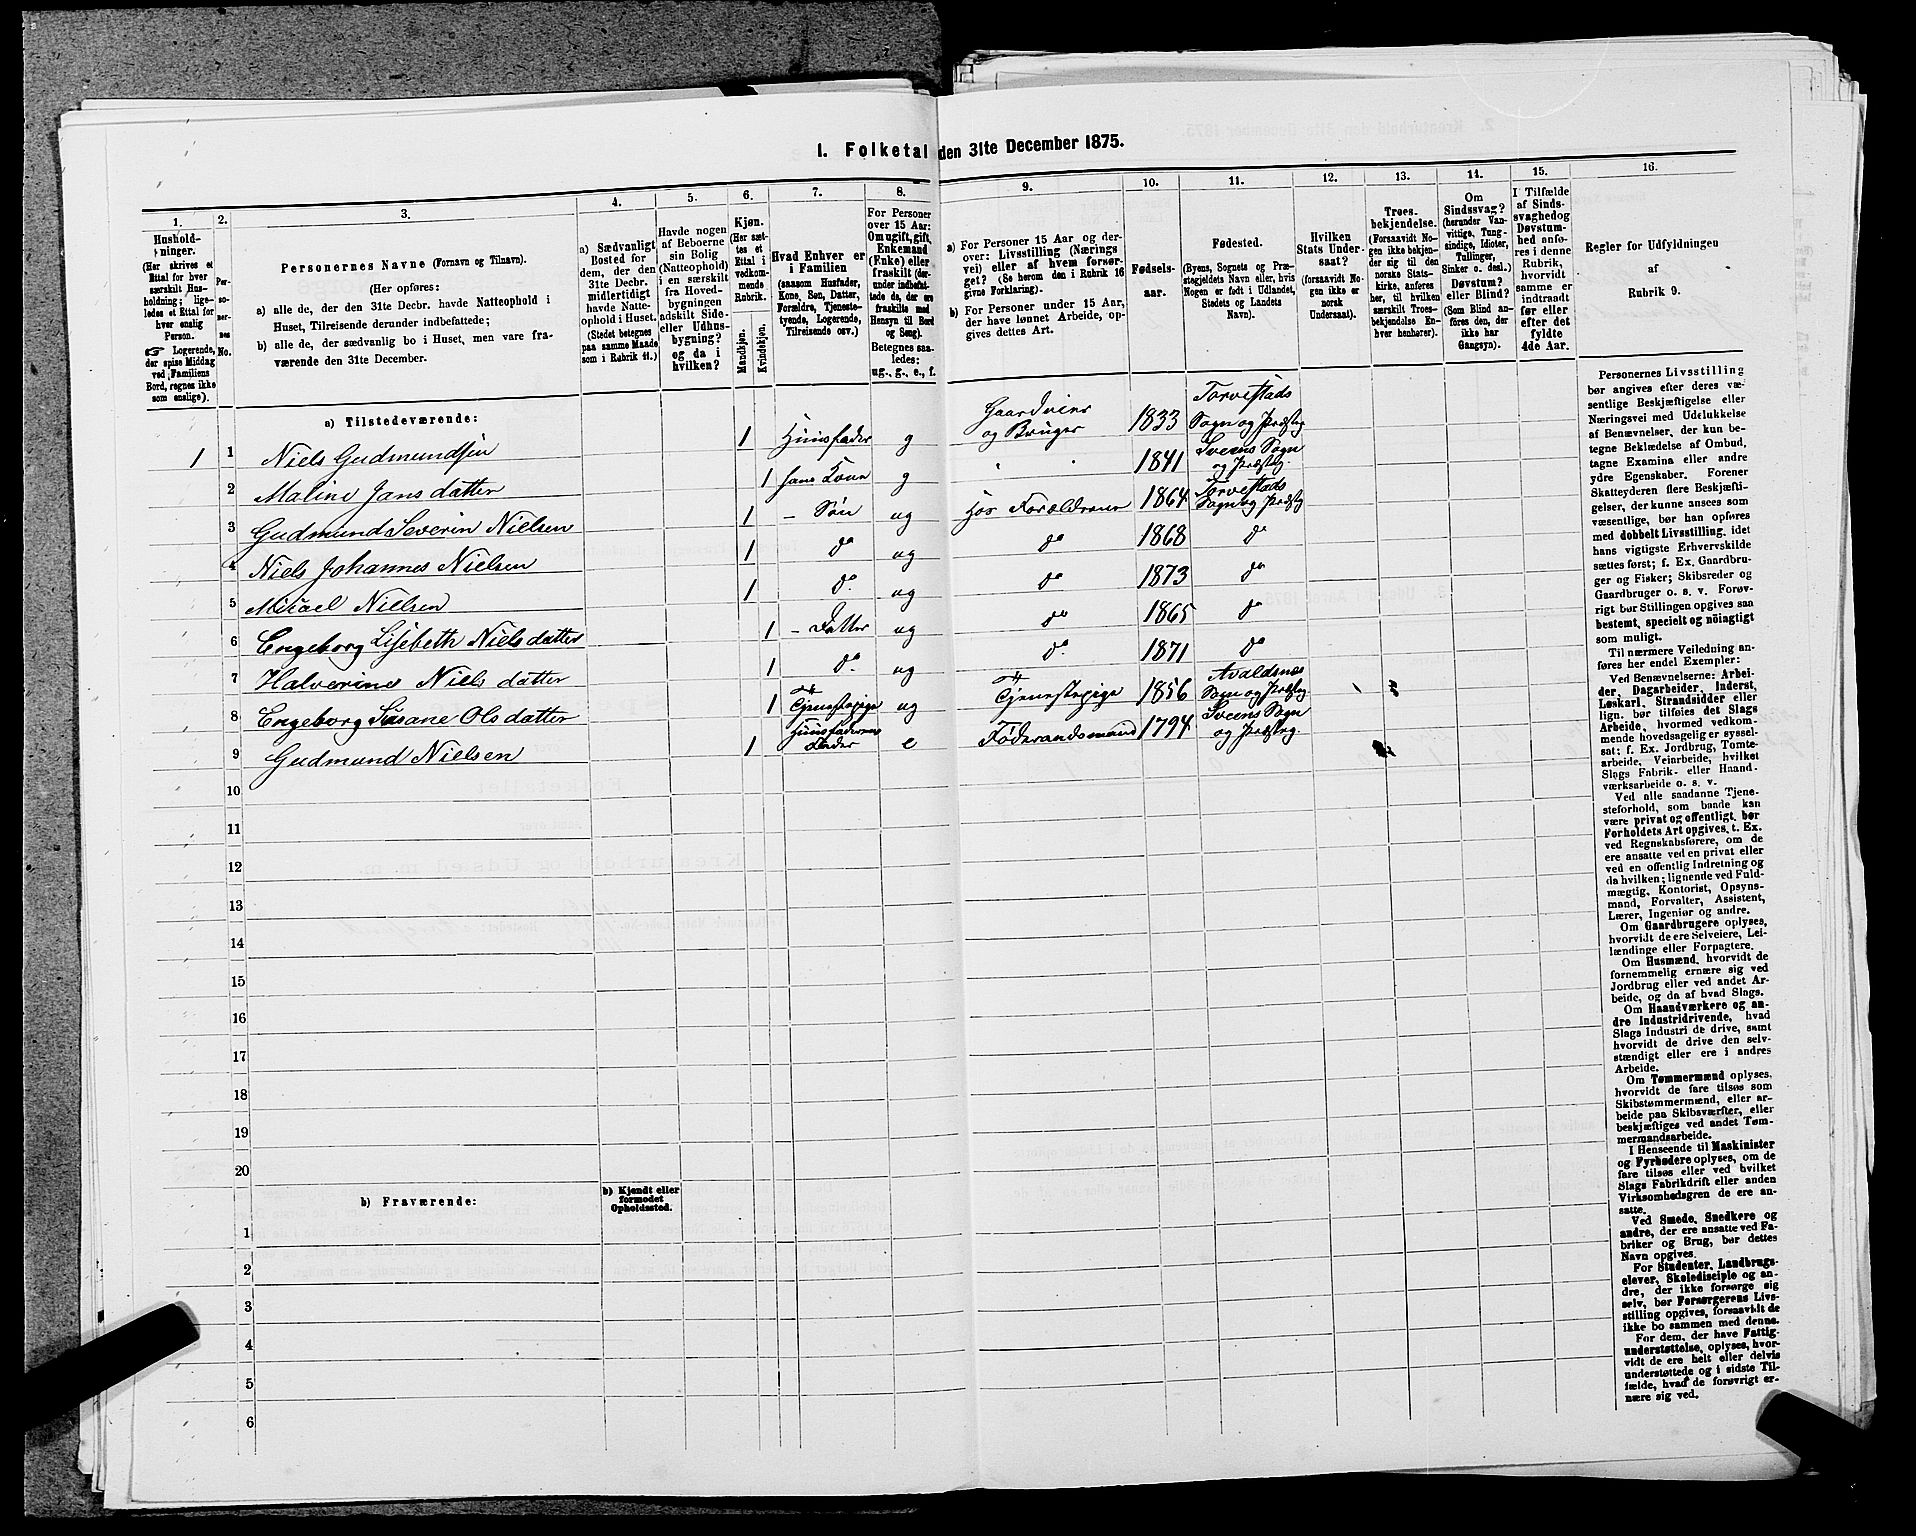 1. Folketal den 31te December 1875.
1.
2.
3.
4.
5.
6.
7.
8.
9.
10.
11.
12.
13.
14.
15.
16.
Hushold-
ninger.
(Her skrives et
Ettal for hver
særskilt Hus-
holdning; lige-
ledes et Ettal for
hver enslig
Person.
☞ Logerende,
der spise Middag
ved Familiens
Bord, regnes ikke
som enslige).
Per-
so-
ner-
nes
No.
Personernes Navne (Fornavn og Tilnavn).
(Her opføres:
a) alle de, der den 31te Decbr. havde Natteophold i
Huset, Tilreisende derunder indbefattede;
b) alle de, der sædvanlig bo i Huset, men vare fra-
værende den 31te December.
a) Sædvanligt
Bosted for
dem, der den
31te Decbr.
midlertidigt
havde Natte-
ophold i Huset.
(Stedet betegnes
paa samme Maade
som i Rubrik 11.)
Havde nogen
af Beboerne
sin Bolig
(Natteophold)
i en særskilt
fra Hoved-
bygningen
adskilt Side-
eller Udhus-
bygning?
og da i
hvilken?
Kjøn.
(Her sæt-
tes et
Ettal i
vedkom-
mende
Rubrik.
Mandkjøn.
Kvindekjøn.
Hvad Enhver er
i Familien
(saasom Husfader,
Kone, Søn, Datter,
Forældre, Tjeneste-
tyende, Logerende,
Tilreisende osv.)
For Personer
over 15 Aar:
Om ugift, gift,
Enkemand
(Enke) eller
fraskilt (der-
under indbefat-
tede da, der ere
fraskilte med
Hensyn til Bord
og Seng).
Betegnes saa-
ledes:
ug., g., e., f.
a) For Personer 15 Aar og der-
over: Livsstilling (Nærings
vei) eller af hvem forsør-
get? (Se herom den i Rubrik 16
givne Forklaring).
b) For Personer under 15 Aar,
der have lønnet Arbeide, op-
gives dettes Art.
Fødsels-
aar.
Fødested.
(Byens, Sognets og Præ-
stegjeldets Navn eller, hvis
Nogen er født i Udlandet,
Stedets og Landets
Navn).
Hvilken
Stats Under-
saat?
(forsaavidt No-
gen ikke er
norsk
Undersaat).
Troes-
bekjendelse.
(Forsaavidt No-
gen ikke bekjen-
der sig til den
norske Stats-
kirke, anføres
her, til hvilken
særskilt Troes-
bekjendelse En-
hver henhører).
Om
Sindssvag?
(herunder Van-
vittige, Tung-
sindige, Idioter,
Tullinger,
Sinker o. desl.)
Døvstum?
eller Blind?
(Som Blind an-
føres den, der
ikke har
Gangsyn).
I Tilfælde
af Sinds-
svaghed og
Døvstum-
hed anfø-
res i denne
Rubrik,
hvorvidt
samme er
indtraadt
før eller
efter det
fyldte
4de Aar.
Regler for Udfyldningen
af
Rubrik 9.
a) Tilstedeværende:
1 1 Niels Gudmundsen 1 Huusfader g Gaardeier og Bruger 1833 Torvestads Sogn og Præstg
2 Maline Jansdatter 1 hans Kone g " " 1841 Sveens Sogn og Præstg.
3 Gudmund Severin Nielsen 1 - Søn ug Hos Forældrene 1864 Torvestads Sogn og Præstg
4 Niels Johannes Nielsen 1 do ug do 1868 do
5 Mikael Nielsen 1 do. ug do 1873 do
6 Engeborg Lisebeth Nielsdatter 1 - Datter ug do 1865 do
7 Halverine Nielsdatter 1 do. ug do. 1871 do
8 Engeborg Susane Olsdatter 1 Tjenestepige ug Tjenestepige 1856 Avaldsnes Sogn og Præstg
9 Gudmund Nielsen 1 Huusfaderens Fader e Föderaadsmand 1794 Sveens Sogn og Præsteg.
10
11
12
13
14
15
16
17
18
19
20
b) Fraværende:
b) Kjendt eller
formodet
Opholdssted.
1
2
3
4
5
6
Personernes Livsstilling
bør angives efter deres væ-
sentlige Beskjæftigelse eller
Næringsvei med Udelukkelse
af Benævnelser, der kun be-
tegne Beklædelse af Ombud,
tagne Examina eller andre
ydre Egenskaber. Forener
Skatteyderen flere Beskjæfti-
gelser, der kunne ansees som
væsentlige, bør han opføres
med dobbelt Livsstilling, idet
hans vigtigste Erhvervskilde
sættes først; f. Ex. Gaardbru-
ger og Fisker; Skibsreder og
Gaardbruger o. s. v. Forøv-
rigt bør Stillingen opgives saa
bestemt, specielt og nöiagtigt
som muligt.
Til nærmere Veiledning an-
føres her endel Exempler:
Ved Benævnelserne: Arbei-
der, Dagarbeider, Inderst,
Løskarl, Strandsidder eller
lign. bør tilføies det Slags
Arbeide, hvormed vedkom-
mende hovedsagelig er syssel-
sat; f. Ex. Jordbrug, Tomte-
arbeide, Veiarbeide, hvilket
Slags Fabrik- eller Haand-
værksarbeide o. s. v.
Ved alle saadanne Tjene-
steforhold, som baade kan
være privat og offentligt, bør
Forholdets Art opgives, t. Ex.
ved Regnskabsførere, om de
ere ansatte ved en privat eller
ved en offentlig Indretning og
da hvilken; lignende ved Fuld-
mægtig, Kontorist, Opsyns-
mand, Forvalter, Assistent,
Lærer, Ingeniør og andre.
Om Gaardbrugere oplyses,
hvorvidt de ere Selveiere, Lei-
lændinge eller Forpagtere.
Om Husmænd, hvorvidt de
fornemmelig ernære sig ved
Jordbrug eller ved andet Ar-
beide, og da af hvad Slags.
Om Haandværkere og an-
dre Industridrivende, hvad
Slags Industri de drive, samt
hvorvidt de drive den selv-
stændigt eller ere i andres
Arbeide.
Om Tømmermænd oplyses,
hvorvidt de fare tilsøs som
Skibstømmermænd, eller ar-
beide paa Skibsværfter, eller
beskjæftiges ved andet Tøm-
mermandsarbeide.
I Henseende til Maskinister
og Fyrbødere oplyses, om de
fare tilsøs eller ved hvilket
Slags Fabrikdrift eller anden
Virksomhedsgren de ere an-
satte.
Ved Smede, Snedkere og
andre, der ere ansatte ved Fa-
briker og Brug, bør dettes
Navn opgives.
For Studenter, Landbrugs-
elever, Skoledisciple og an-
dre, der ikke forsørge sig
selv, bør Forsørgerens Livs-
stilling opgives, forsaavidt de
ikke bo sammen med denne.
For dem, der have Fattig-
understøttelse, oplyses, hvor-
vidt de ere helt eller delvis
understøttede og i sidste Til-
fælde, hvad de forøvrigt er-
nære sig ved.